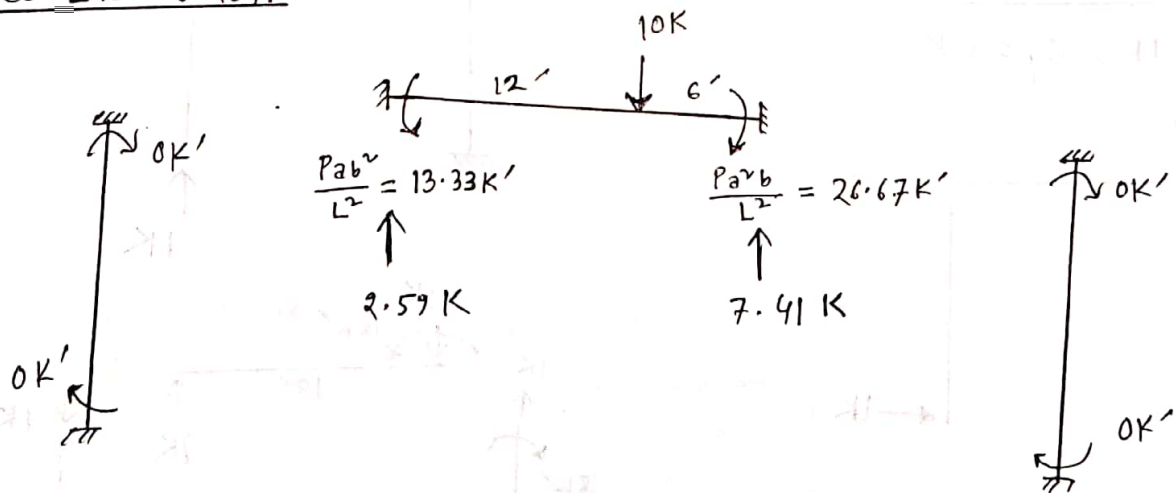 10K
12′ 6′
0K′
Pab²/L² = 13.33K′ Pa²b/L² = 26.67K′
0K′
2.59 K 7.41 K
0K′
0K′